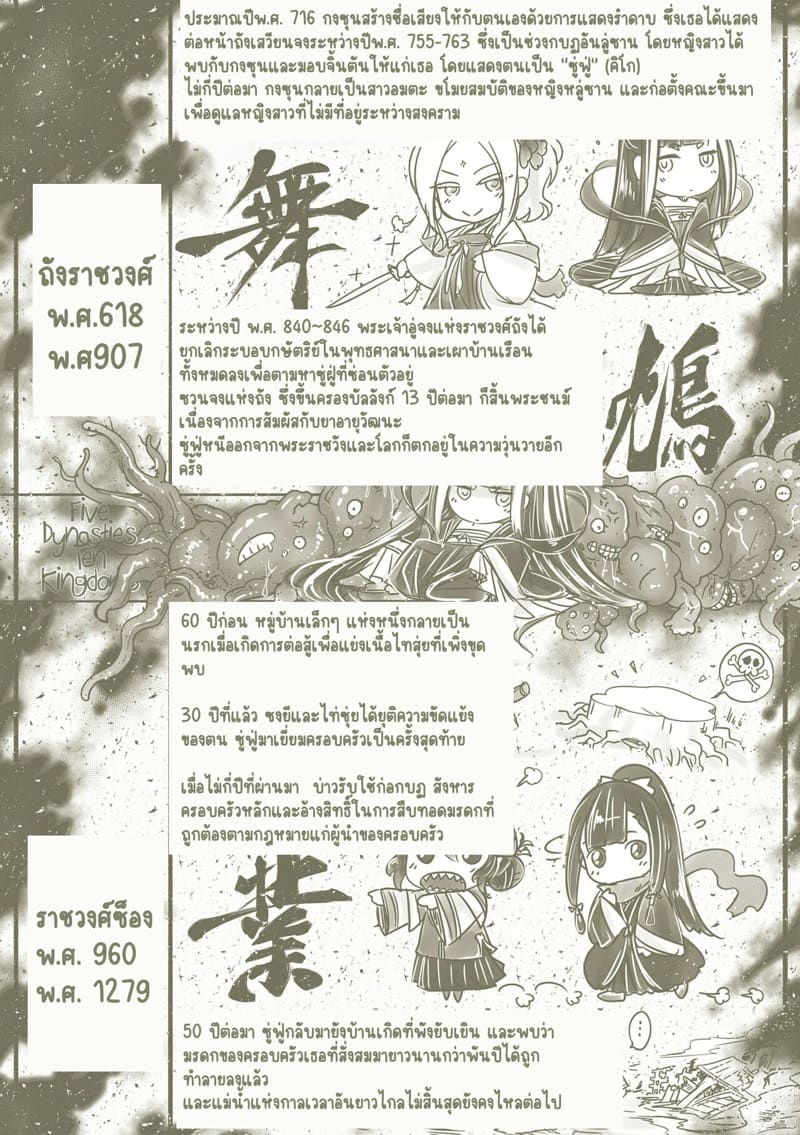 ประมาณปีพ.ศ. 716 กงซุนสร้างชื่อเสียงให้กับตนเองด้วยการแสดงรำดาบ ซึ่งเธอได้แสดง
ต่อหน้าถังเสวียนจงระหว่างปีพ.ศ. 755-763 ซึ่งเป็นช่วงกบฏอันลู่ซาน โดยหญิงสาวได้
พบกับกงซุนและมอบจิ้นตันให้แก่เธอ โดยแสดงตนเป็น "ซู่ฟู่" (คิโก)
ไม่กี่ปีต่อมา กงซุนกลายเป็นสาวอมตะ ขโมยสมบัติของหญิงหลู่ซาน และก่อตั้งคณะขึ้นมา
เพื่อดูแลหญิงสาวที่ไม่มีที่อยู่ระหว่างสงคราม
舞
ถังราชวงศ์
พ.ศ.618
พ.ศ907
ระหว่างปี พ.ศ. 840~846 พระเจ้าอู่จงแห่งราชวงศ์ถังได้
ยกเลิกระบอบกษัตริย์ในพุทธศาสนาและเผาบ้านเรือน
ทั้งหมดลงเพื่อตามหาซู่ฝู่ที่ซ่อนตัวอยู่
ชวนจงแห่งถัง ซึ่งขึ้นครองบัลลังก์ 13 ปีต่อมา ก็สิ้นพระชนม์
เนื่องจากการสัมผัสกับยาอายุวัฒนะ
ซู่ฟู่หนีออกจากพระราชวังและโลกก็ตกอยู่ในความวุ่นวายอีก
ครั้ง
鳩
Five
Dynasties
Ten
Kingdoms
60 ปีก่อน หมู่บ้านเล็กๆ แห่งหนึ่งกลายเป็น
นรกเมื่อเกิดการต่อสู้เพื่อแย่งเนื้อไทสุ่ยที่เพิ่งขุด
พบ
30 ปีที่แล้ว ซงยีและไท่ซุ่ยได้ยุติความขัดแย้ง
ของตน ซู่ฟู่มาเยี่ยมครอบครัวเป็นครั้งสุดท้าย
เมื่อไม่กี่ปีที่ผ่านมา บ่าวรับใช้ก่อกบฏ สังหาร
ครอบครัวหลักและอ้างสิทธิ์ในการสืบทอดมรดกที่
ถูกต้องตามกฎหมายแก่ผู้นำของครอบครัว
業
ราชวงศ์ซ็อง
พ.ศ. 960
พ.ศ. 1279
50 ปีต่อมา ซู่ฟู่กลับมายังบ้านเกิดที่พังยับเยิน และพบว่า
มรดกของครอบครัวเธอที่สั่งสมมายาวนานกว่าพันปีได้ถูก
ทำลายลงแล้ว
และแม่น้ำแห่งกาลเวลาอันยาวไกลไม่สิ้นสุดยังคงไหลต่อไป